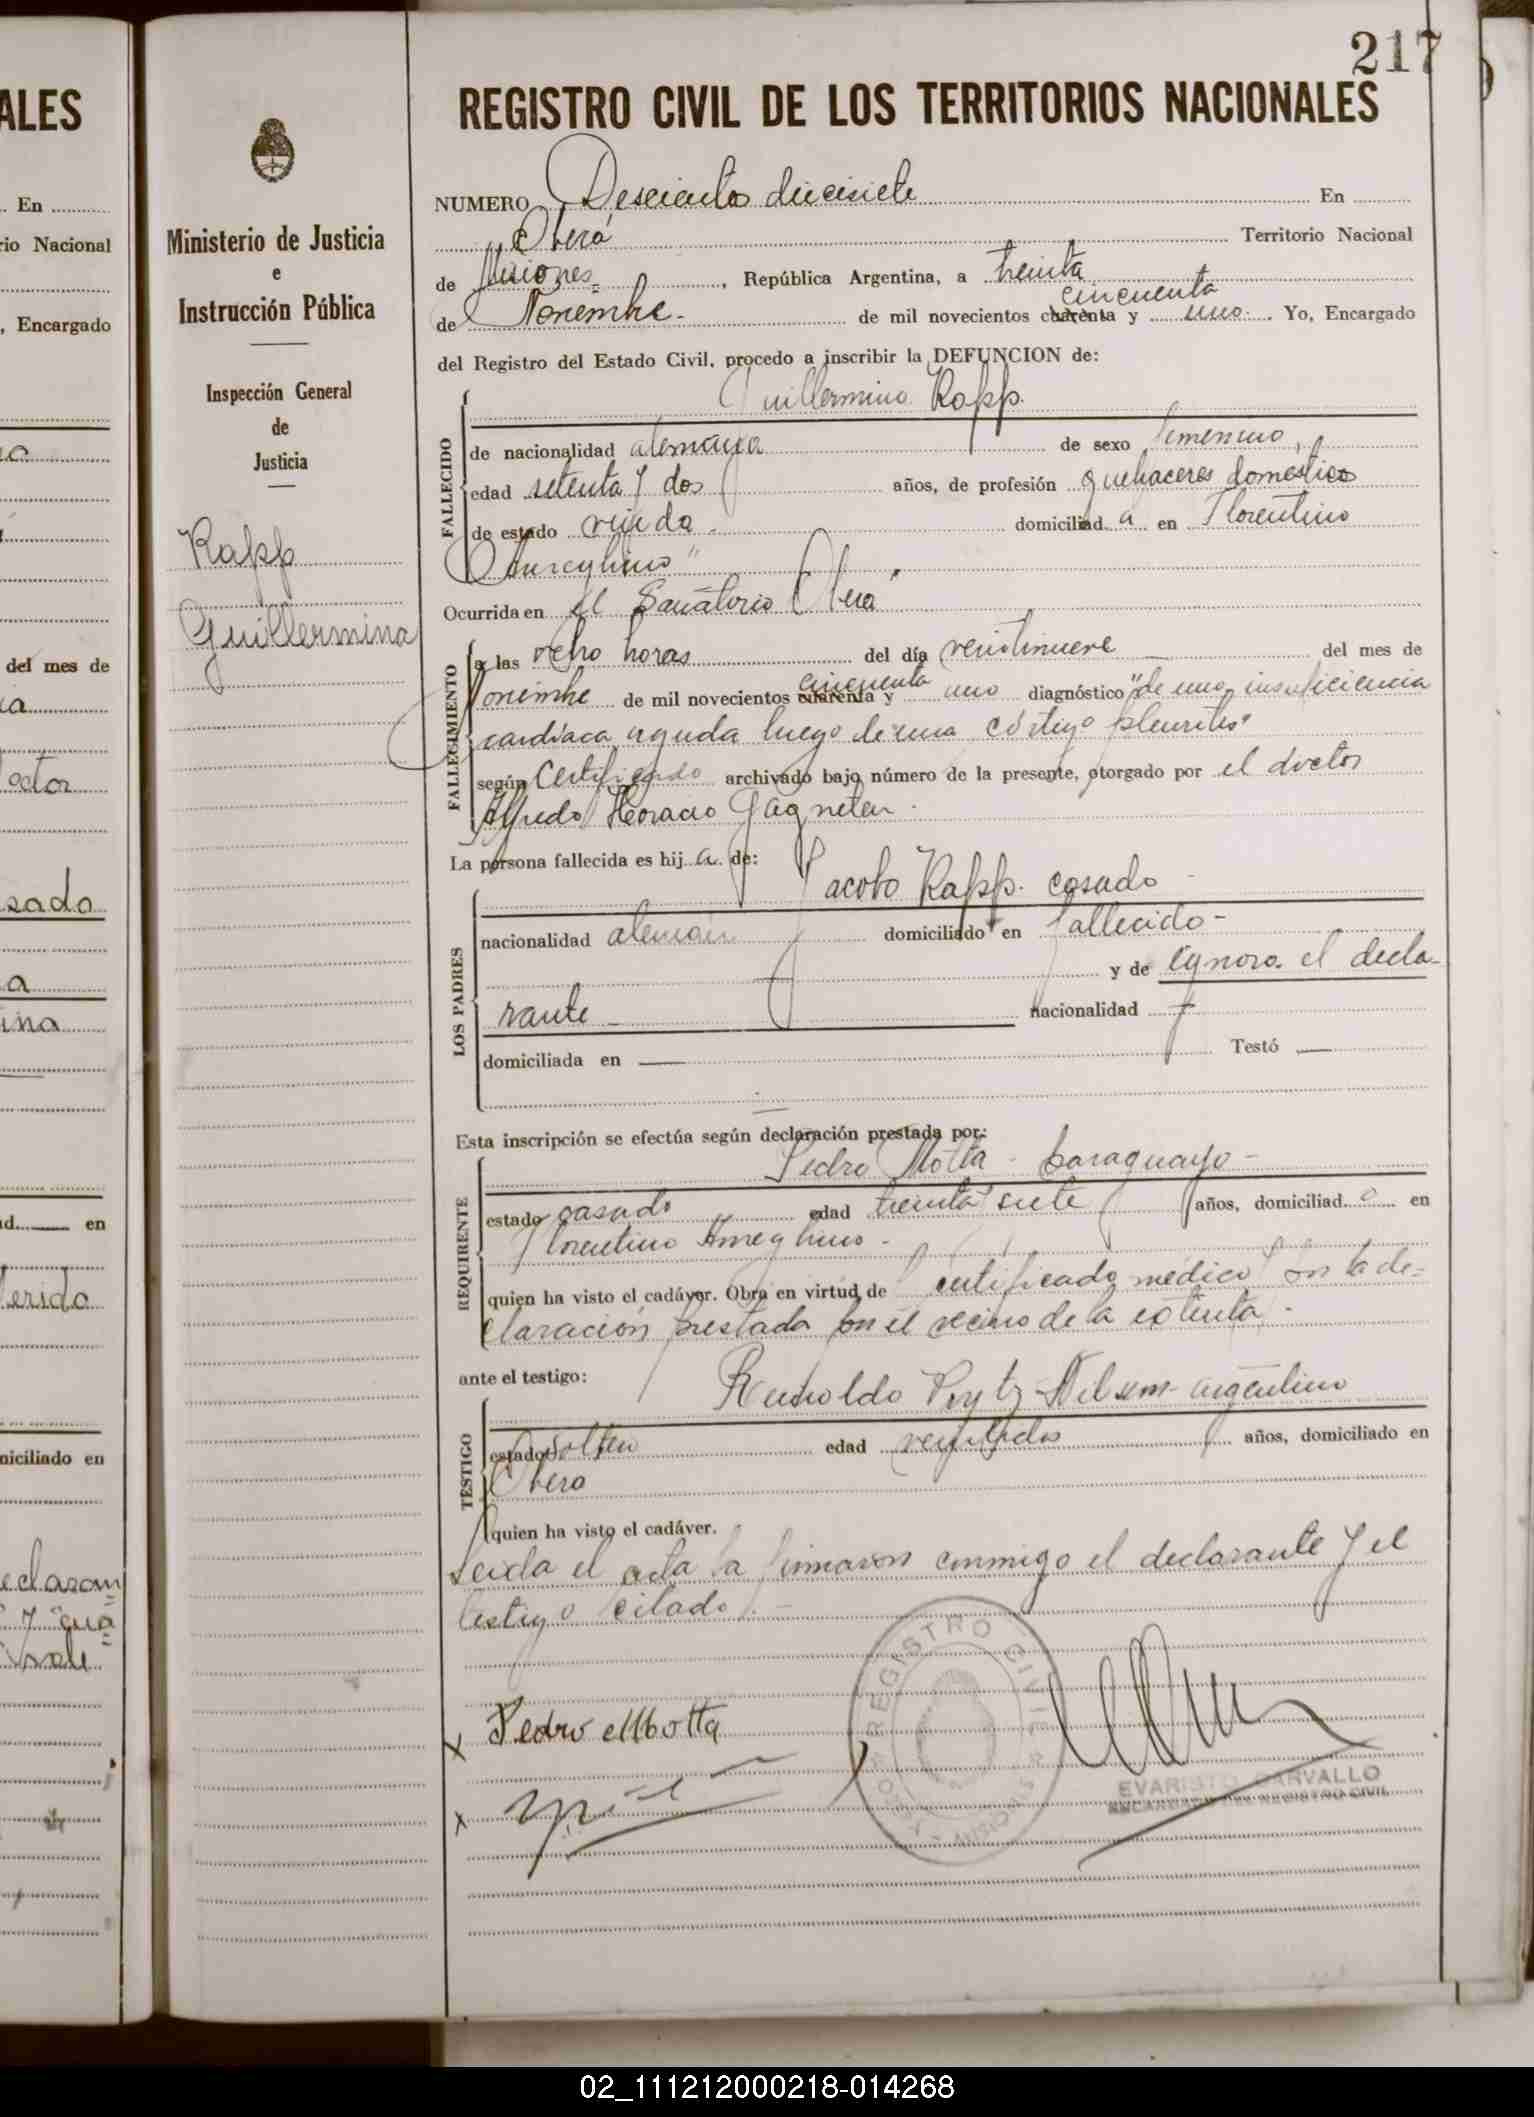 217
ALES
REGISTRO CIVIL DE LOS TERRITORIOS NACIONALES
En
io Nacional
, Encargado
del mes de
ector
sado
a
ina
d. en
ferido
miciliado en
eclaran
Ministerio de Justicia
e
Instrucción Pública
Inspección General
de
Justicia
Rapp
Guillermina
NUMERO Desciento diecisiete En
Oberá Territorio Nacional
de Misiones , República Argentina, a treinta
cincuenta
de Noviembre de mil novecientos cuarenta y uno Yo, Encargado
del Registro del Estado Civil, procedo a inscribir la DEFUNCION de:
Guillermina Rapp.
FALLECIDO
de nacionalidad alemana de sexo femenino,
edad setenta y dos años, de profesión quehaceres domestico
de estado viuda domiciliad a en Florentino
Ameghino"
Ocurrida en el Sanatorio Oberá
FALLECIMIENTO
a las ocho horas del día veintinueve del mes de
cincuenta
Noviembre de mil novecientos cuarenta y uno diagnóstico "de una insuficiencia
cardíaca aguda luego de una pleuritis"
según Certificado archivado bajo número de la presente, otorgado por el doctor
Alfredo Horacio Gagneten
La persona fallecida es hij a de:
LOS PADRES
Jacobo Rapp. casado
nacionalidad alemán domiciliado en fallecido -
y de ignora el decla-
rante nacionalidad
domiciliada en — Testó —
Esta inscripción se efectúa según declaración prestada por:
REQUIRENTE
Pedro Motta - paraguayo -
estado casado edad treinta y siete años, domiciliad o en
Florentino Ameghino -
quien ha visto el cadáver. Obra en virtud de certificado médico en la de-
claración prestada por el vecino de la
ante el testigo:
TESTIGO
Reinoldo argentino
estado soltero edad veintidos años, domiciliado en
Oberá
quien ha visto el cadáver.
Leida el acta la firmaron conmigo el declarante y el
testigo citado. -
x Pedro Motta
x
REGISTRO CIVIL
MISIONES
EVARISTO CARVALLO
ENCARGADO DEL REGISTRO CIVIL
02_111212000218-014268